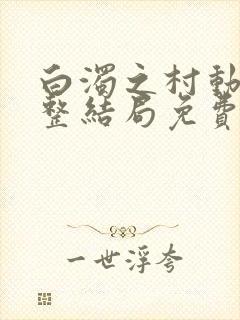 白濁之村動
整結局免費
一世浮夸